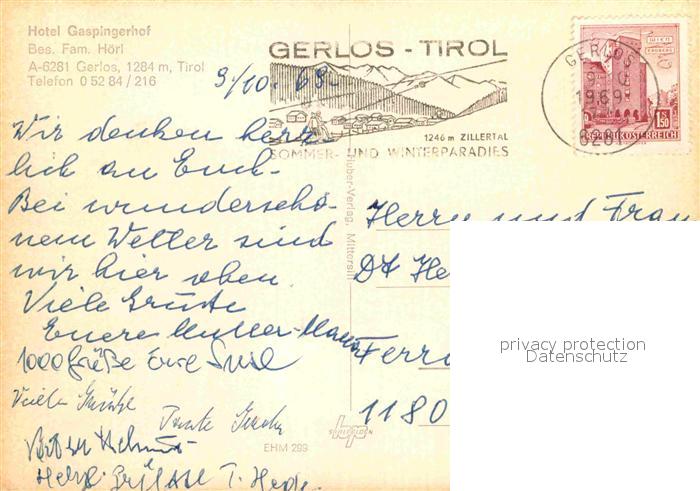 Hotel Gaspingerhof
Bes. Fam. Hörl
A-6281 Gerlos, 1284 m, Tirol
Telefon 0 52 84 / 216
GERLOS - TIROL
1246 m ZILLERTAL
SOMMER- UND WINTERPARADIES
GERLOS
1969
6281
WIEN
ERDBERG
1.50
REPUBLIK ÖSTERREICH
3/10. 69.
Wir denken herz-
lich an Euch.
Bei wunderschö-
nem Wetter sind
wir hier oben
Viele Grüsse
Euere Mutter-
1000 Grüße Eure Susl
Viele Grüße
Tante
Helmut
T.
Huber-Verlag, Mittersill
EHM 299
Herrn und Frau
Df He
Ferr
1180
privacy protection
Datenschutz